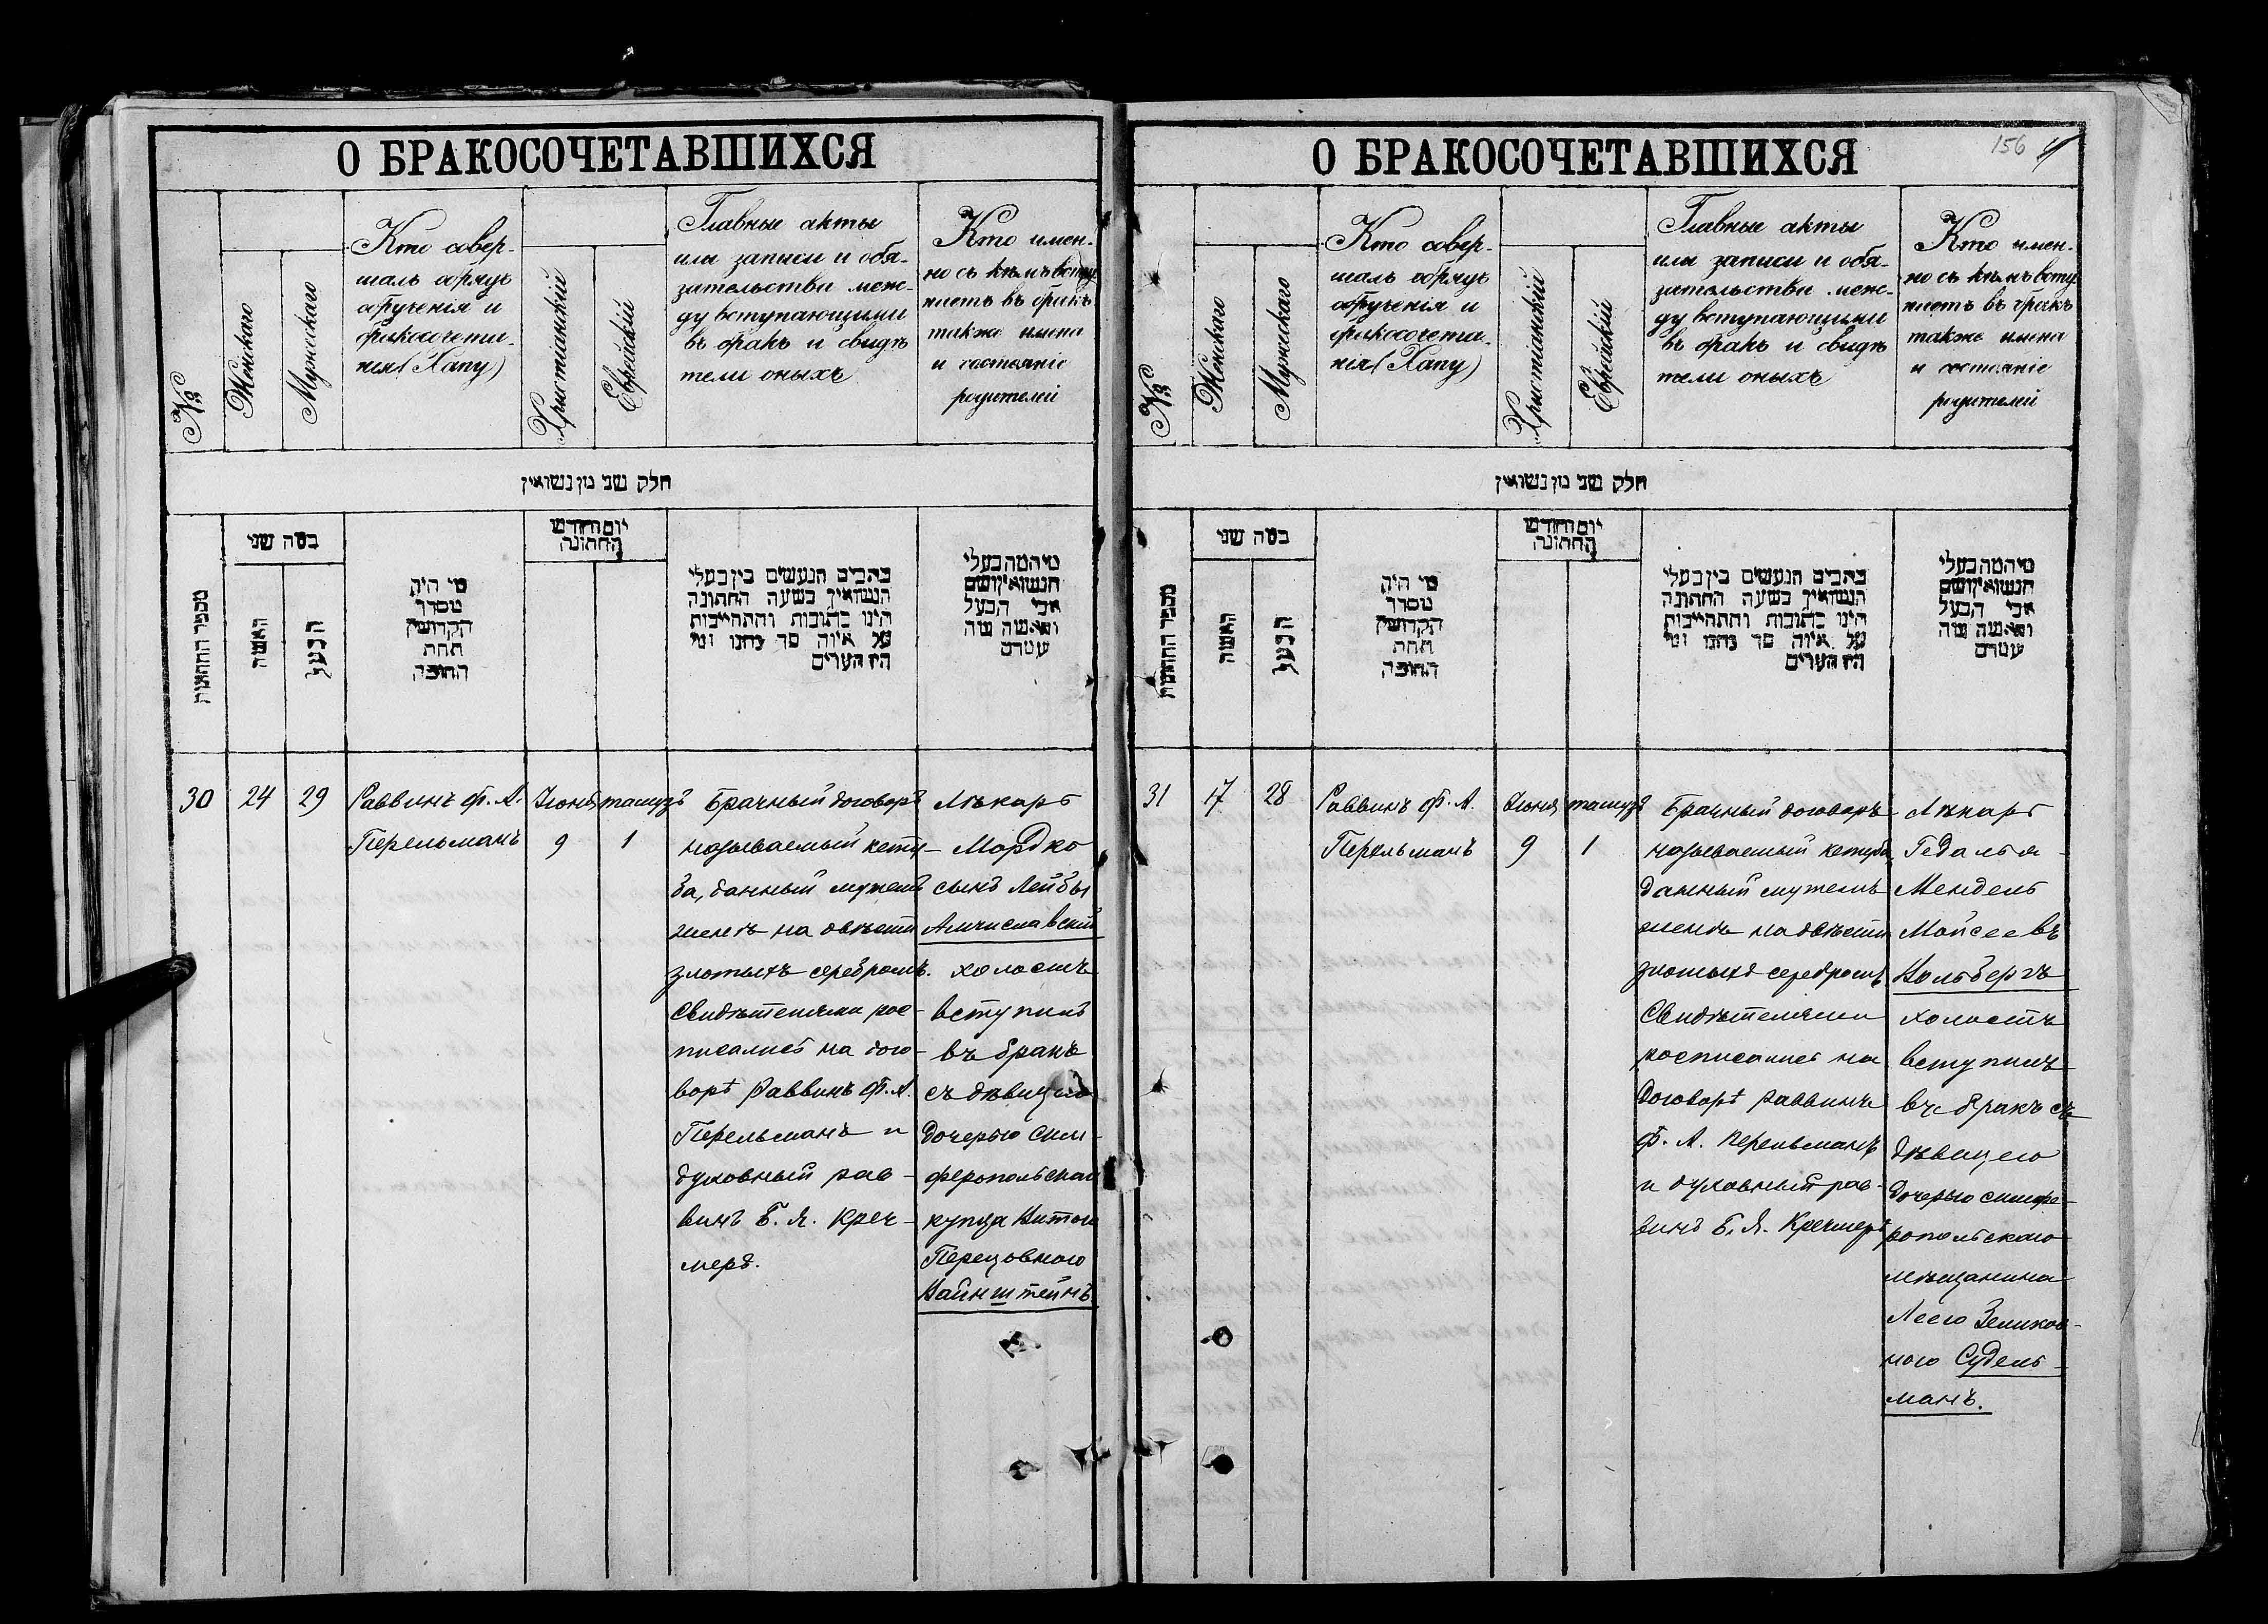 О БРАКОСОЧЕТАВШИХСЯ
№
Женскаго
Мужескаго
Кто совер-
шалъ обрядъ
обрученія и
бракосочета-
нія (Хапу)
Христіанскій
Еврейскій
Главные акты
или записи и обя-
зательства меж-
ду вступающими
въ бракъ и свидѣ
тели оныхъ
Кто имен-
но съ кѣмъ всту
паетъ въ бракъ
также имена
и состояніе
родителей
חלק שני מן נשואין
מספר החתונות
בסה שני
האשה
הבעל
מי היה
מסדר
הקדושין
תחת
החופה
יום וחודש
החתונה
כתבים הנעשים בין בעלי
הנשואין בשעה החתונה
היינו כתובות והתחייבות
על איזה סך
העדים
אבי הבעל
30
24
29
Раввинъ Ф. А.
Перельманъ
Іюня
9
тамузъ
1
Брачный договоръ
называемый кету-
ба, данный мужемъ
женѣ на двѣсти
злотыхъ серебромъ.
Свидѣтелями рос-
писались на дого-
ворѣ Раввинъ Ф. А.
Перельманъ и
духовный рав-
винъ Б. Я. Креч-
меръ.
Лѣкарь
Мордко
сынъ Лейбы
Амчиславскій
холостъ
вступилъ
въ бракъ
съ дѣвицею
дочерью Сим-
феропольскаго
купца
Перецовного
Вайнштейнъ
О БРАКОСОЧЕТАВШИХСЯ
156
№
Женскаго
Мужескаго
Кто совер-
шалъ обрядъ
обрученія и
бракосочета-
нія (Хапу)
Христіанскій
Еврейскій
Главные акты
или записи и обя-
зательства меж-
ду вступающими
въ бракъ и свидѣ
тели оныхъ
Кто имен-
но съ кѣмъ всту
паетъ въ бракъ
также имена
и состояніе
родителей
חלק שני מן נשואין
מספר החתונות
בסה שני
האשה
הבעל
מי היה
מסדר
הקדושין
תחת
החופה
יום וחודש
החתונה
כתבים הנעשים בין בעלי
הנשואין בשעה החתונה
היינו כתובות והתחייבות
על איזה סך
העדים
אבי הבעל
31
17
28
Раввинъ Ф. А.
Перельманъ
Іюня
9
тамузъ
1
Брачный договоръ
называемый кетуба
данный мужемъ
женѣ на двѣсти
злотыхъ серебромъ
Свидѣтелями
росписались на
договорѣ раввинъ
Ф. А. Перельманъ
и духовный рав-
винъ Б. Я. Кречмеръ
Лѣкарь
Гедалья-
Мендель
Мойсеевъ
Вольбергъ
холостъ
вступилъ
въ бракъ съ
дѣвицею
дочерью симфе-
ропольскаго
мѣщанина
Леею Зеликов-
ною Судель-
манъ.